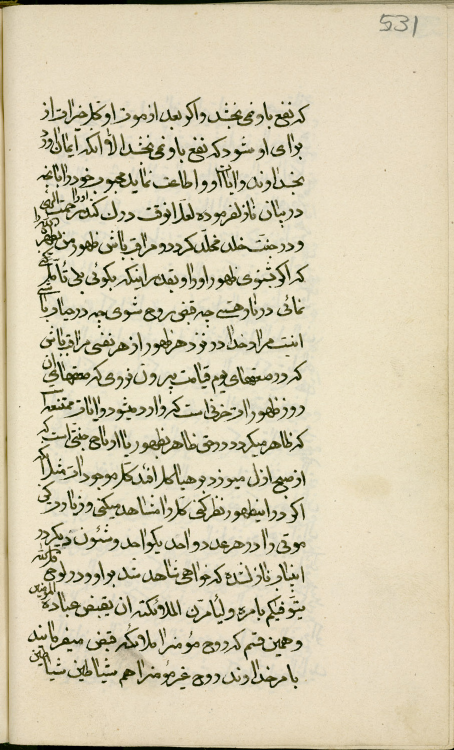 531
که نفع باو نمی بخشد و اگر بعد از موت او کل خیرات از
برای او شود که نفع باو نمی بخشد الا آنکه ایمان آورد
بخداوند و ایات او و اطاعت نماید محبوب خود را انچه
در بیان نازل فرموده لعل انوقت درک کند
و در جنت خلد مخلد گردد و مراقب باش ظهور من
که اگر شنوی ظهور او را و بقدر اینکه بگوئی بلی تأمل
نمائی در نار هستی چه قبض روح شوی چه در حیات
اینست مراد خداوند در نزد هر ظهور از هر نفسی مراقب باش
که در صقعهای یوم قیامت بیرون نروی که صقعهای
روز ظهور او حرفی است که وارد میشود و ایات ممتنعه
که ظاهر میگردد در حق ظاهر بظهور یا
از صبح ازل میوزد و هیاکل افئده کل موجودات
اگر در ان ظهور نظر کنی کل را مشاهده میکنی
موتی را در هر عدد واحد یکواحد و شئون دیگر در
اینباب نازل شده که خواهی شاهد شد بر او و در لوح
یتوفیکم بامره و لیأمرن الملائکته ان یقبضن عباده المؤمنین
و همین قسم که روح مؤمن را ملائکه قبض میفرمایند
بامر خداوند روح غیر مؤمن را هم شیاطین شیاطین